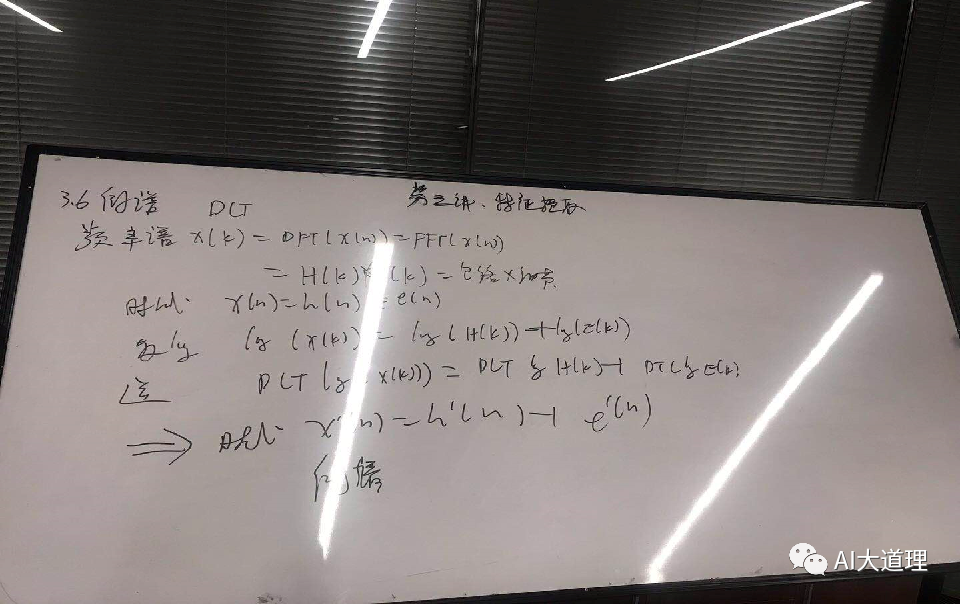 第三讲、特征提取
3.6 倒谱 DCT
频率谱 X(k) = DFT(x(n)) = FFT(x(n))
= H(k) (k) = 包络×细节
时域: x(n) = h(n) e(n)
取lg lg (X(k)) = lg (H(k)) + lg(E(k))
逆 DCT (lg X(k)) = DCT lg H(k) + DCT lg E(k)
⟹ 时域: x'(n) = h'(n) + e'(n)
倒谱
AI大道理